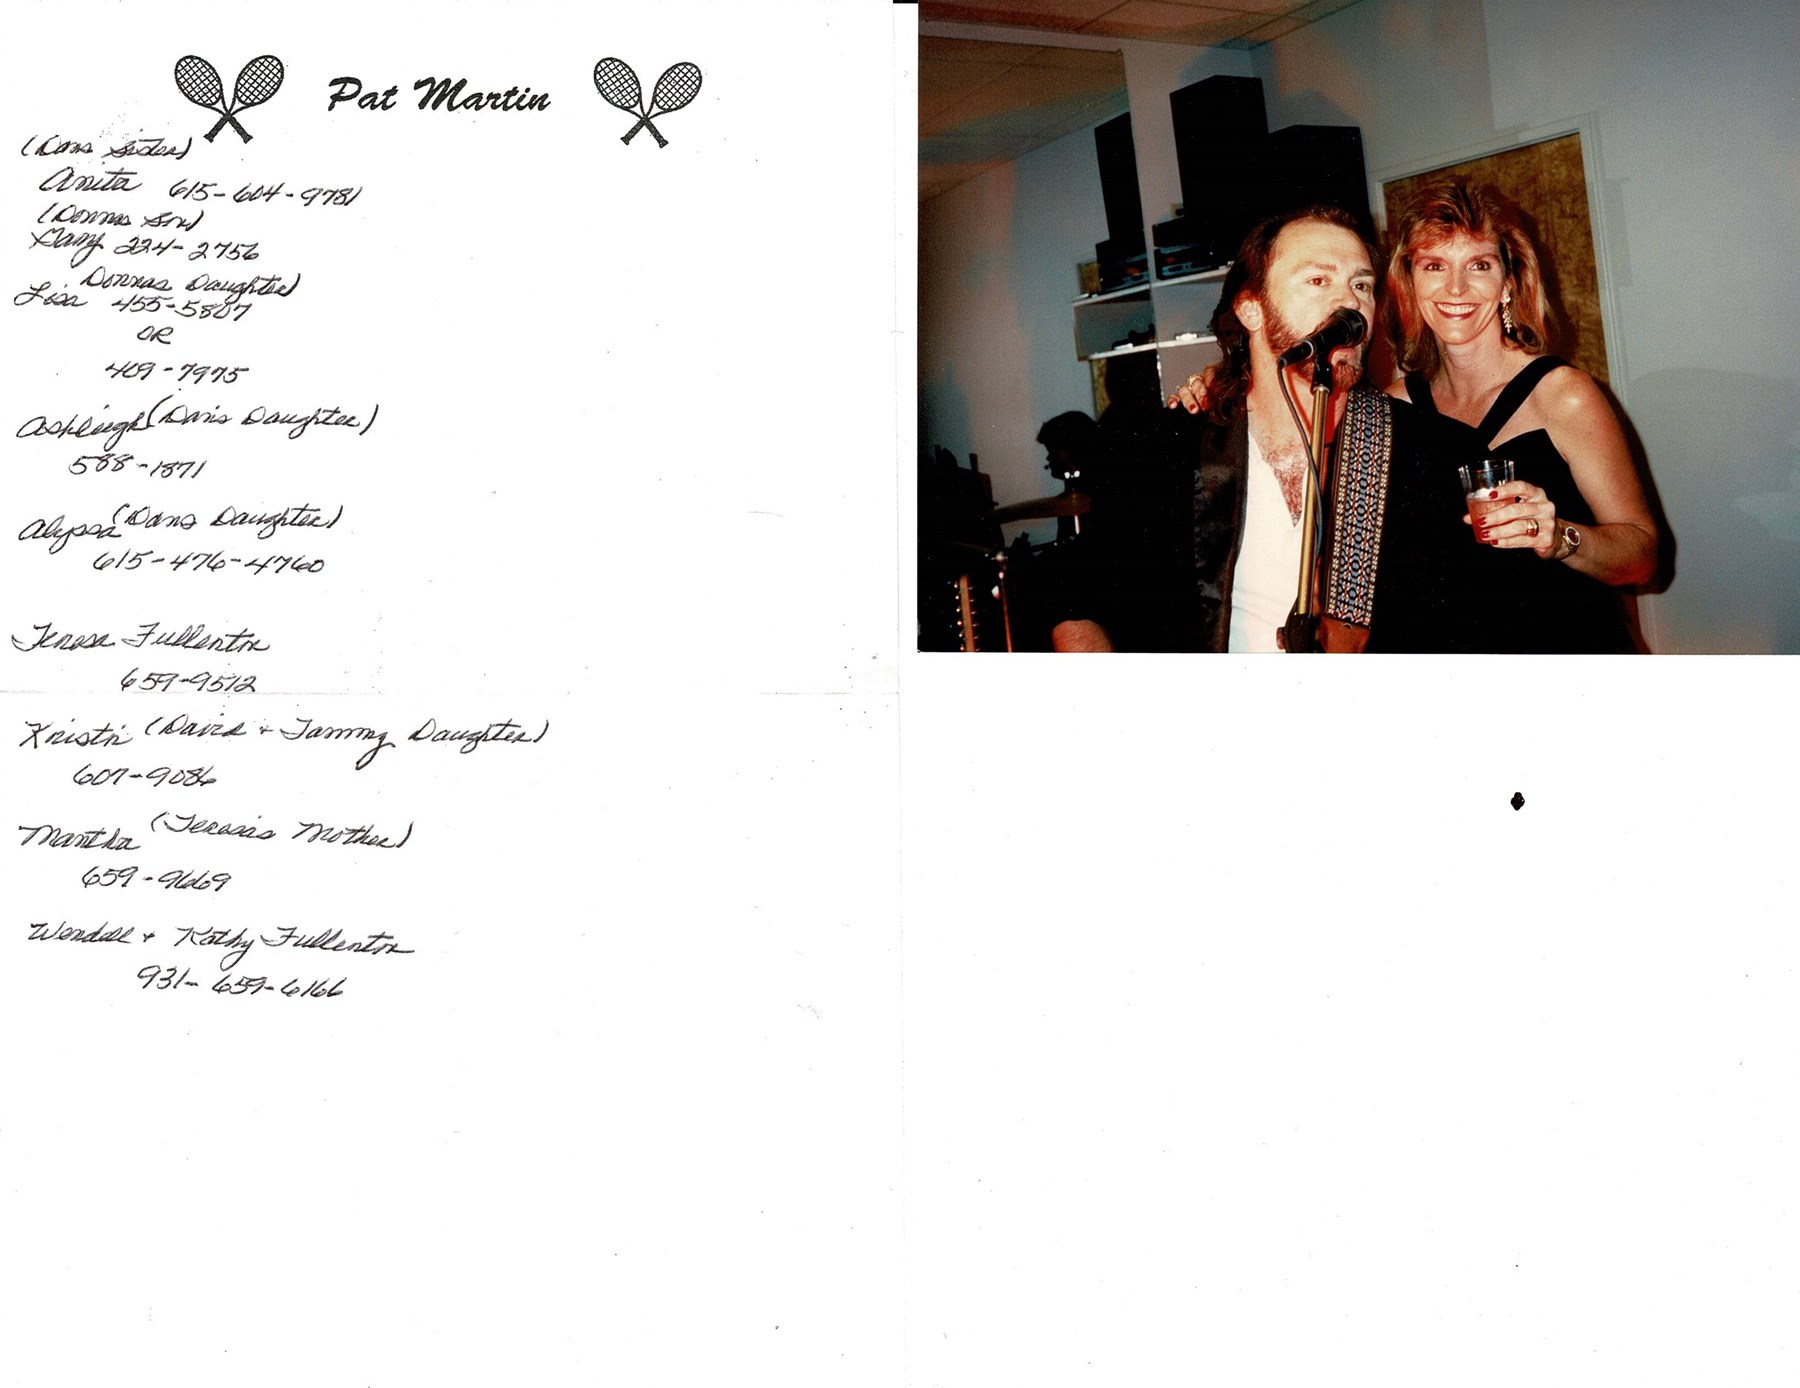 Pat Martin
(Dans Sister)
Anita 615-604-9781
(Donnas Son)
Gary 224-2756
Donnas Daughter)
Lisa 455-5807
OR
409-7975
Ashleigh (Dans Daughter)
588-1871
Alyssa (Dans Daughter)
615-476-4760
Teresa Fullerton
659-9512
Kristi (David + Tammy Daughter)
607-9086
Martha (Teresa's Mother)
659-9669
Wendall + Kathy Fullerton
931-659-6166